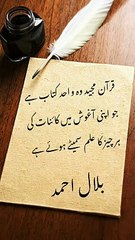 قرآن مجید وہ واحد کتاب ہے
جو اپنی آغوش میں کائنات کی
ہر چیز کا علم سمیٹے ہوئے ہے
بلال احمد